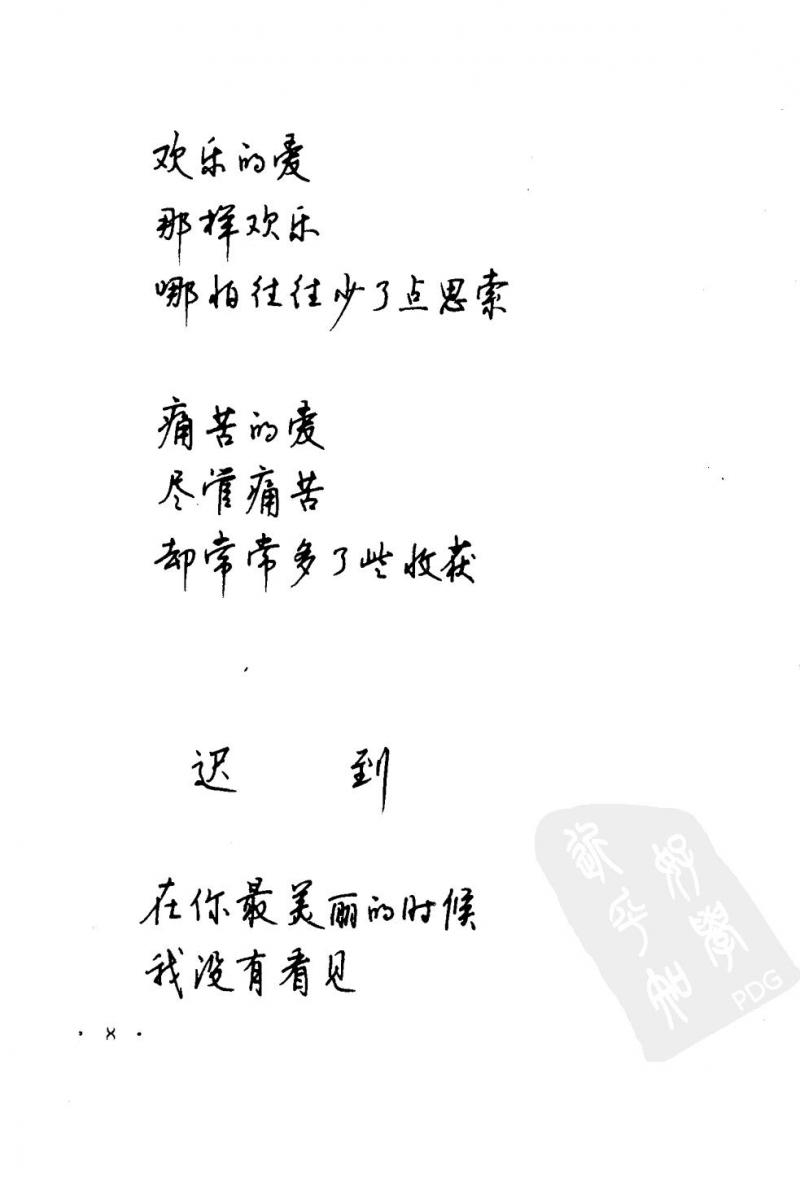 欢乐的爱
那样欢乐
哪怕往往少了点思索
痛苦的爱
尽管痛苦
却常常多了些收获
迟 到
在你最美丽的时候
我没有看见
· 8 ·
PDG